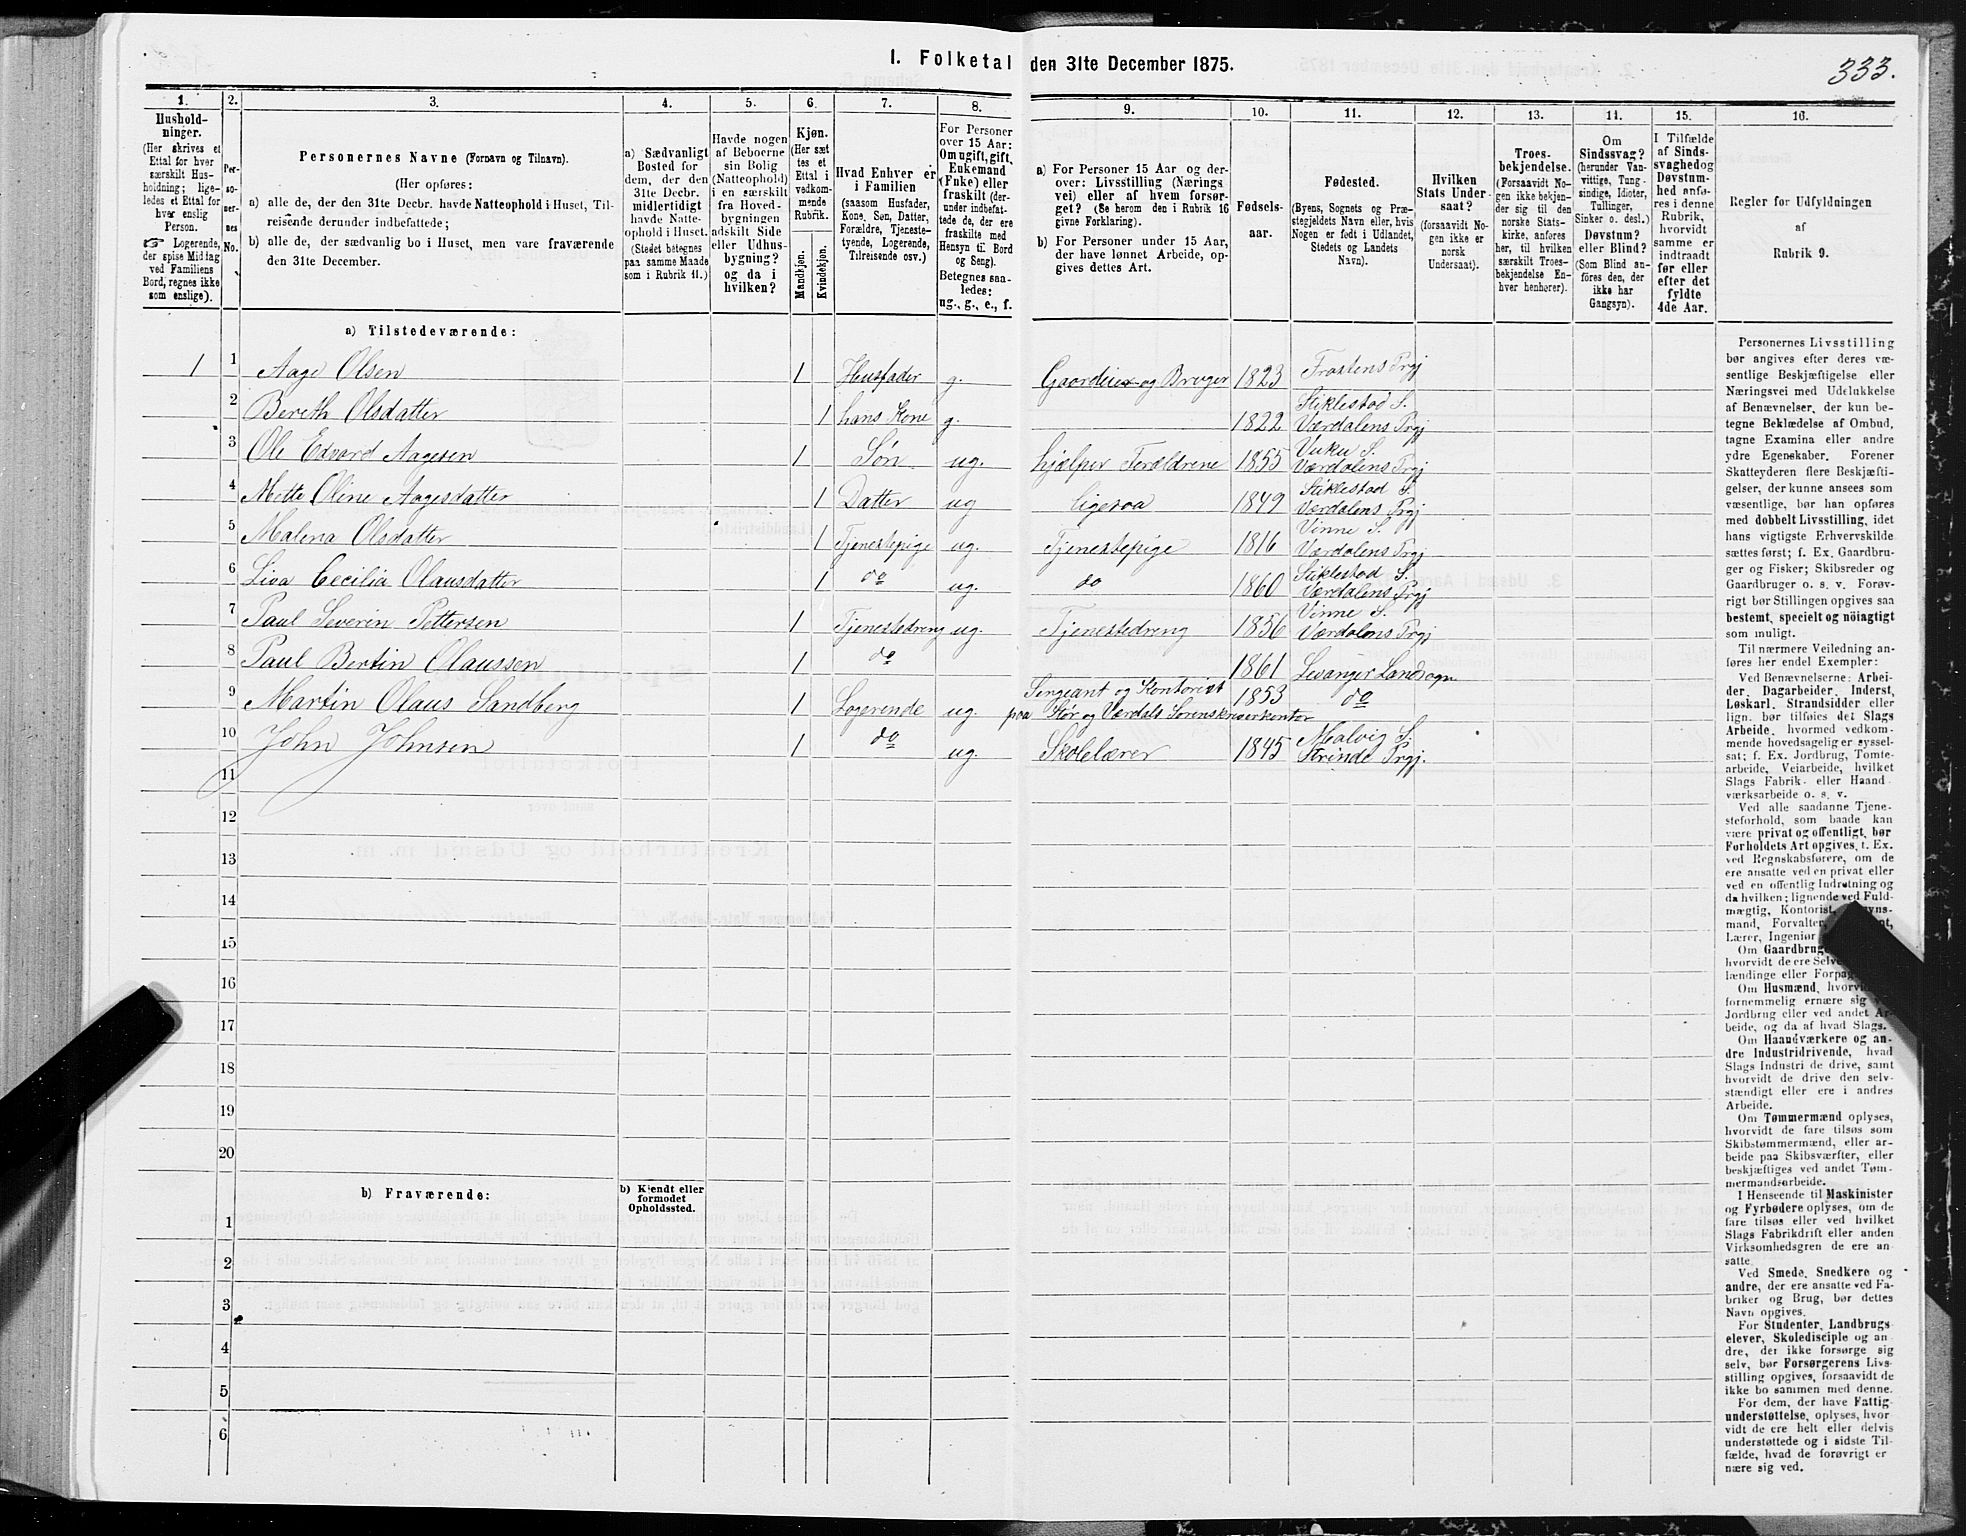 I. Folketal den 31te December 1875.
333.
1.
Hushold-
ninger.
(Her skrives et
Ettal for hver
særskilt Hus-
holdning; lige-
ledes et Ettal for
hver enslig
Person.
Logerende,
der spise Middag
ved Familiens
Bord, regnes ikke
som enslige).
2.
Per-
so-
ner-
nes
No.
3.
Personernes Navne (Fornavn og Tilnavn).
(Her opføres:
a) alle de, der den 31te Decbr. havde Natteophold i Huset, Til-
reisende derunder indbefattede;
b) alle de, der sædvanlig bo i Huset, men vare fraværende
den 31te December.
4.
a) Sædvanligt
Bosted for
dem, der den
31te Decbr.
midlertidigt
havde Natte-
ophold i Huset.
(Stedet betegnes
paa samme Maade
som i Rubrik 11.)
5.
Havde nogen
af Beboerne
sin Bolig
(Natteophold)
i en særskilt
fra Hoved-
bygningen
adskilt Side
eller Udhus-
bygning?
og da i
hvilken?
6.
Kjøn.
(Her sæt-
tes et
Ettal i
vedkom-
mende
Rubrik.
Mandkjøn.
Kvindekjøn.
7.
Hvad Enhver er
i Familien
(saasom Husfader,
Kone, Søn, Datter,
Forældre, Tjeneste-
tyende, Logerende,
Tilreisende osv.)
8.
For Personer
over 15 Aar:
Om ugift, gift,
Enkemand
(Enke) eller
fraskilt (der-
under indbefat-
tede de, der ere
fraskilte med
Hensyn til Bord
og Seng).
Betegnes saa-
ledes:
ug., g., e., f.
9.
a) For Personer 15 Aar og der-
over: Livsstilling (Nærings
vei) eller af hvem forsør-
get? (Se herom den i Rubrik 16
givne Forklaring).
b) For Personer under 15 Aar,
der have lønnet Arbeide, op-
gives dettes Art.
10.
Fødsels-
aar.
11.
Fødested.
(Byens, Sognets og Præ-
stegjeldets Navn eller, hvis
Nogen er født i Udlandet,
Stedets og Landets
Navn).
12.
Hvilken
Stats Under-
saat?
(forsaavidt No-
gen ikke er
norsk
Undersaat).
13.
Troes-
bekjendelse.
(Forsaavidt No-
gen ikke bekjen-
der sig til den
norske Stats-
kirke, anføres
her, til hvilken
særskilt Troes-
bekjendelse En-
hver henhører).
14.
Om
Sindssvag?
(herunder Van-
vittige, Tung-
sindige, Idioter,
Tullinger,
Sinker o. desl.)
Døvstum?
eller Blind?
(Som Blind an-
føres den, der
ikke har
Gangsyn).
15.
I Tilfælde
af Sinds-
svaghed og
Døvstum-
hed anfø-
res i denne
Rubrik,
hvorvidt
samme er
indtraadt
før eller
efter det
fyldte
4de Aar.
16.
Regler for Udfyldningen
af
Rubrik 9.
a) Tilstedeværende:
1 1 Aage Olsen 1 Husfader g. Gaardeier og Bruger 1823 Frostens Prgj
2 Bereth Olsdatter 1 hans Kone g. 1822 Stiklestad S. Værdalens Prgj
3 Ole Edvard Aagesen 1 Søn ug. hjælper Forældrene 1855 Vuku S. Værdalens Prgj
4 Mette Oline Aagesdatter 1 Datter ug ligesaa 1849 Stiklestad S. Værdalens Prgj
5 Malena Olsdatter 1 Tjenestepige ug. Tjenestepige 1816 Vinne S. Værdalens Prgj
6 Liva Cecilia Olausdatter 1 do ug. do 1860 Stiklestad S. Værdalens Prgj
7 Paul Severin Pettersen 1 Tjenestedreng ug. Tjenestedreng 1856 Vinne S. Værdalens Prgj
8 Paul Bertin Olaussen 1 do 1861 Levanger Landsogn
9 Martin Olaus Sandberg 1 Logerende ug. Sergeant og Kontorist paa Stør og Værdals Sorenskriverkontor 1853 do
10 John Johnsen 1 do ug. Skolelærer 1845 Malvig S. Strinde Prgj.
11
12
13
14
15
16
17
18
19
20
b) Fraværende:
b) Kjendt eller
formodet
Opholdssted.
1
2
3
4
5
6
Personernes Livsstilling
bør angives efter deres væ-
sentlige Beskjæftigelse eller
Næringsvei med Udelukkelse
af Benævnelser, der kun be-
tegne Beklædelse af Ombud,
tagne Examina eller andre
ydre Egenskaber. Forener
Skatteyderen flere Beskjæfti-
gelser, der kunne ansees som
væsentlige, bør han opføres
med dobbelt Livsstilling, idet
hans vigtigste Erhvervskilde
sættes først; f. Ex. Gaardbru-
ger og Fisker; Skibsreder og
Gaardbruger o. s. v. Forøv-
rigt bør Stillingen opgives saa
bestemt, specielt og nøiagtigt
som muligt.
Til nærmere Veiledning an-
føres her endel Exempler:
Ved Benævnelserne: Arbei-
der, Dagarbeider, Inderst,
Løskarl, Strandsidder eller
lign. bør tilføies det Slags
Arbeide, hvormed vedkom-
mende hovedsagelig er syssel-
sat; f. Ex. Jordbrug, Tømte-
arbeide, Veiarbeide, hvilket
Slags Fabrik- eller Haand-
værksarbeide o. s. v.
Ved alle saadanne Tjene-
steforhold, som baade kan
være privat og offentligt, bør
Forholdets Art opgives, t. Ex.
ved Regnskabsførere, om de
ere ansatte ved en privat eller
ved en offentlig Indretning og
da hvilken; lignende ved Fuld-
mægtig, Kontorist,
mand, Forvalter,
Lærer, Ingeniør
Om Gaardbrug
hvorvidt de ere Selv
lændinge eller Forpa
Om Husmænd,
fornemmelig ernære sig
Jordbrug eller ved andet Ar-
beide, og da af hvad Slags.
Om Haandværkere og an-
dre Industridrivende, hvad
Slags Industri de drive, samt
hvorvidt de drive den selv-
stændigt eller ere i andres
Arbeide.
Om Tømmermænd oplyses,
hvorvidt de fare tilsøs som
Skibstømmermænd, eller ar-
beide paa Skibsværfter, eller
beskjæftiges ved andet Tøm-
mermandsarbeide.
I Henseende til Maskinister
og Fyrbødere oplyses, om de
fare tilsøs eller ved hvilket
Slags Fabrikdrift eller anden
Virksomhedsgren de ere an-
satte.
Ved Smede, Snedkere og
andre, der ere ansatte ved Fa-
briker og Brug, bør dettes
Navn opgives.
For Studenter, Landbrugs-
elever, Skoledisciple og an-
dre, der ikke forsørge sig
selv, bør Forsørgerens Livs-
stilling opgives, forsaavidt de
ikke bo sammen med denne.
For dem, der have Fattig-
understøttelse, oplyses, hvor-
vidt de ere helt eller delvis
understøttede og i sidste Til-
fælde, hvad de forøvrigt er-
nære sig ved.